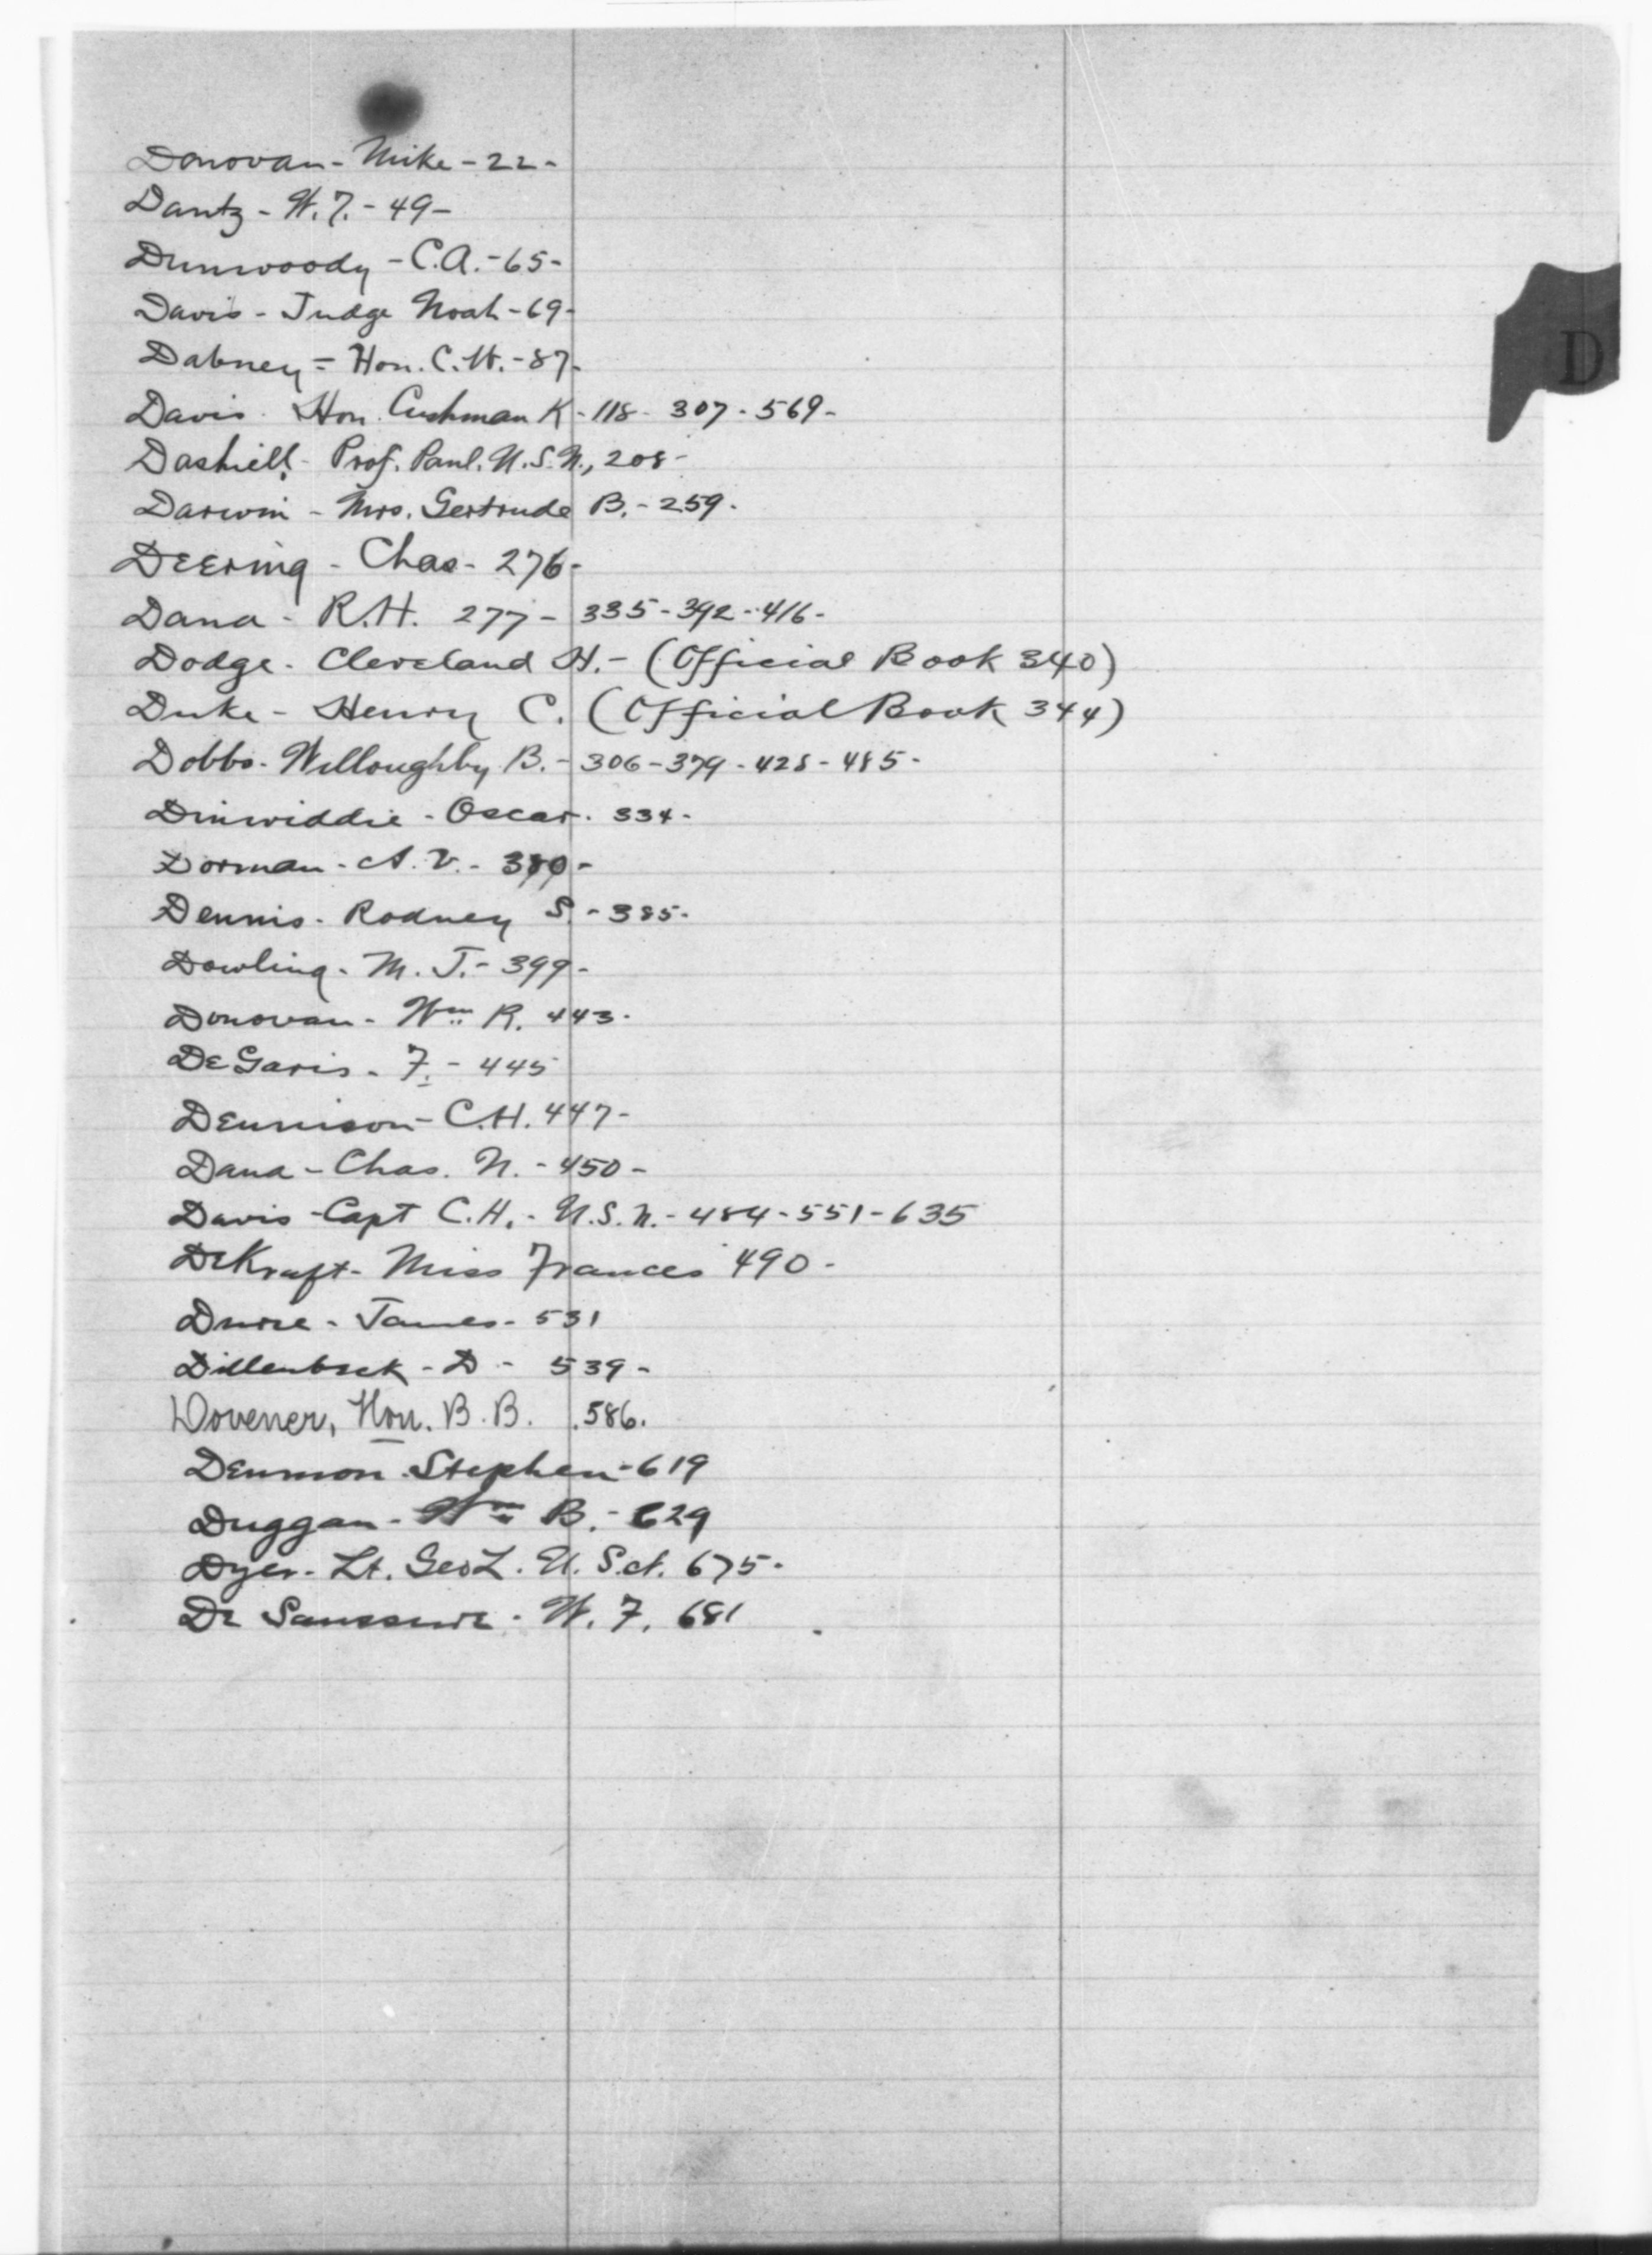 Donovan - Mike - 22 -
Dantz - W. T. - 49 -
Dunwoody - C. A. - 65 -
Davis - Judge Noah - 69 -
Dabney = Hon. C. W. - 87 -
Davis - Hon. Cushman K - 118 - 307 - 569 -
Dashiell - Prof. Paul. U.S.N., 208 -
Darwin - Mrs. Gertrude B. - 259 -
Deering - Chas - 276 -
Dana - R. H. 277 - 335 - 392 - 416 -
Dodge - Cleveland H. - (Official Book 340)
Duke - Henry C. (Official Book 344)
Dobbs - Willoughby B. - 306 - 379 - 428 - 485 -
Dinwiddie - Oscar - 334 -
Dorman - A. V. -
Dennis - Rodney S. - 385 -
Dowling - M. J. - 399 -
Donovan - Wm R. 443 -
De Garis - F. - 445
Dennison - C. H. 447 -
Dana - Chas. N. - 450 -
Davis - Capt C. H. - U.S.N. - 484 - 551 - 635
De Kraft - Miss Frances 490 -
James - 531
Dillenback - D - 539 -
Dovener, Hon. B. B. 586.
Denmon - Stephen - 619
Duggan - Wm B. - 629
Dyer - Lt. Geo L. U. S. N. 675 -
De Saussure - W. F. 681
D